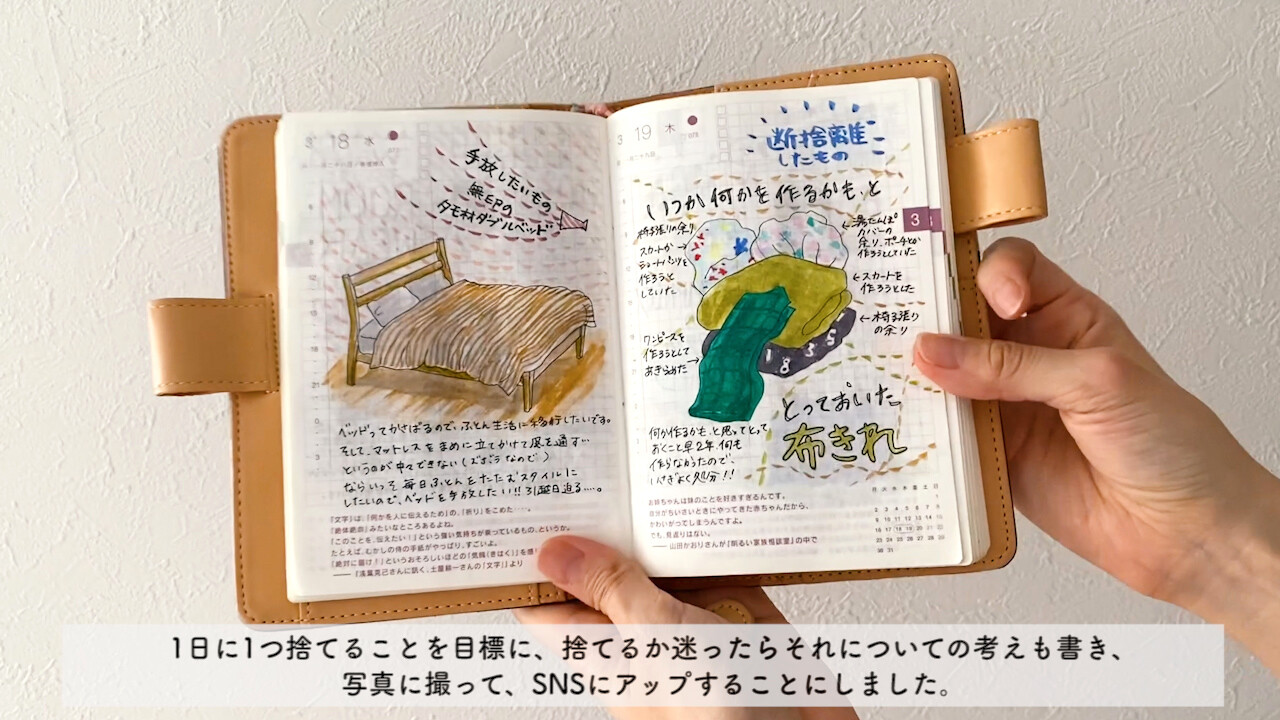 3 18 水
手放したいもの
無印の
タモ材ダブルベッド
ベッドってかさばるので、ふとん生活に移行したいです。
そして、マットレスをまめに立てかけて風を通す…
というのが中々できない(ズボラなので)
ならいっそ毎日ふとんをたたむスタイルに
したいので、ベッドを手放したい!!引越日迫る…。
『文字』は、『何かを人に伝えるため』の、『祈り』をこめた
『絶体絶命』みたいなところあるよね。
『このことを、伝えたい!』という強い気持ちが乗っているもの、というか。
たとえば、むかしの侍の手紙がやっぱり、すごいよ。
『絶対に届け!』というおそろしいほどの『気魄(きはく)』を感
──『浅葉克己さんに訊く、土屋耕一さんの「文字」』より
3 19 木
断捨離
したもの
いつか何かを作るかも、と
椅子張りの余り
スカートか
ショートパンツを
作ろうと
していた
←湯たんぽ
カバーの
余り。ポーチとか
作ろうとしていた
←スカートを
作ろうとした
←椅子張り
の余り
ワンピースを
作ろうとして
あきらめた
3
とっておいた
布きれ
何か作るかも、と思ってとって
おくこと早2年、何も
作らなかったので、
いさぎよく処分!!
お姉ちゃんは妹のことを好きすぎるんです。
自分がちいさいときにやってきた赤ちゃんだから、
かわいがってしまうんですよ。
でも、見返りはない。
──山田かおりさんが『明るい家族相談室』の中で
月 火 水 木 金 土 日
1
2 3 4 5 6 7 8
9 10 11 12 13 14 15
16 17 18 19 20 21 22
23 24 25 26 27 28 29
30 31
1日に1つ捨てることを目標に、捨てるか迷ったらそれについての考えも書き、
写真に撮って、SNSにアップすることにしました。